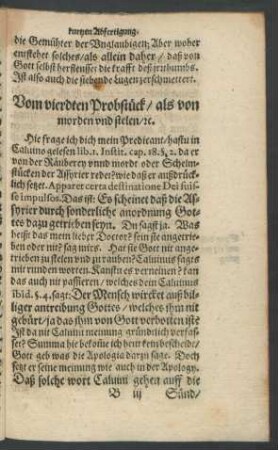 kurtzen Abfertigung.
die Gemühter der Vnglaubigen; Aber woher
entstehet solches/ als allein daher / daß von
Gott selbst herfleusset die krafft deß irrthumbs.
Ist also auch die siebende Lugen zerschmettert.
Vom vierdten Probstück/ als von
morden vnd stelen/ ꝛc.
Hie frage ich dich mein Predicant/ hastu in
Caluino gelesen lib. 1. Instit. cap. 18. §. 2. da er
von der Räuberey vnnd mordt oder Schelm-
stücken der Assyrier redet? wie daß er außdrück-
lich setzet. Apparer certa destinatione Dei fuis-
se impulsos. Das ist: Es scheinet daß die As-
syrier durch sonderliche anordnung Got-
tes dazu getrieben seyn. Du sagst ja. Was
heist das mein lieber Doctere? sein sie angetrie-
ben oder nit? sag mirs. Hat sie Gott nit ange-
trieben zu stelen vnd zu rauben? Caluinus sagts
mit runden worten. Kanstu es verneinen? kan
das auch nit passieren / welches dein Caluinus
ibid. §. 4. sagt: Der Mensch wircket auß bil-
liger antreibung Gottes / welches jhm nit
gebürt/ ja das jhm von Gott verbotten ist?
Ist da nit Caluini meinung gründtlich verfas-
set? Summa hie bekome ich kein bescheide/
Gott geb was die Apologia darzu sage. Doch
setzt er seine meinung wie auch in der Apology.
Daß solche wort Caluini gehen auff die
B iij Sünd/